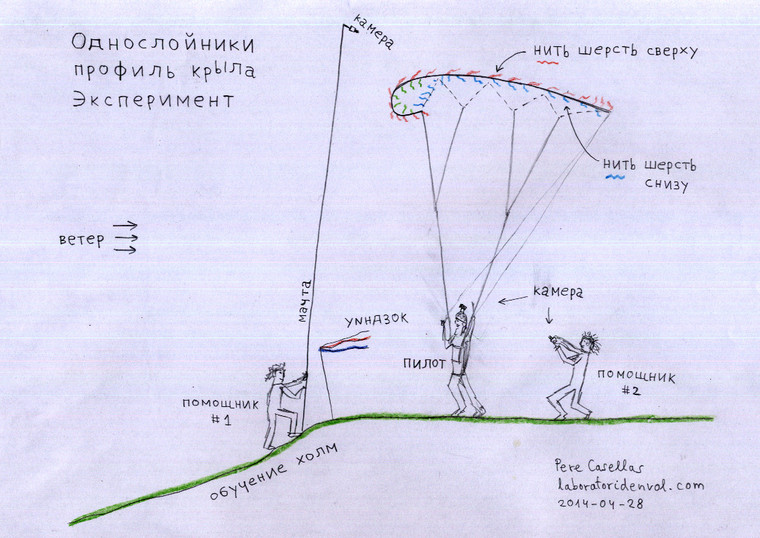 Однослойники
профиль крыла
Эксперимент
камера
нить шерсть сверху
нить шерсть
снизу
ветер
мачта
уиндзок
камера
пилот
помощник
#1
помощник
#2
обучение холм
Pere Casellas
laboratoridenvol.com
2014-04-28